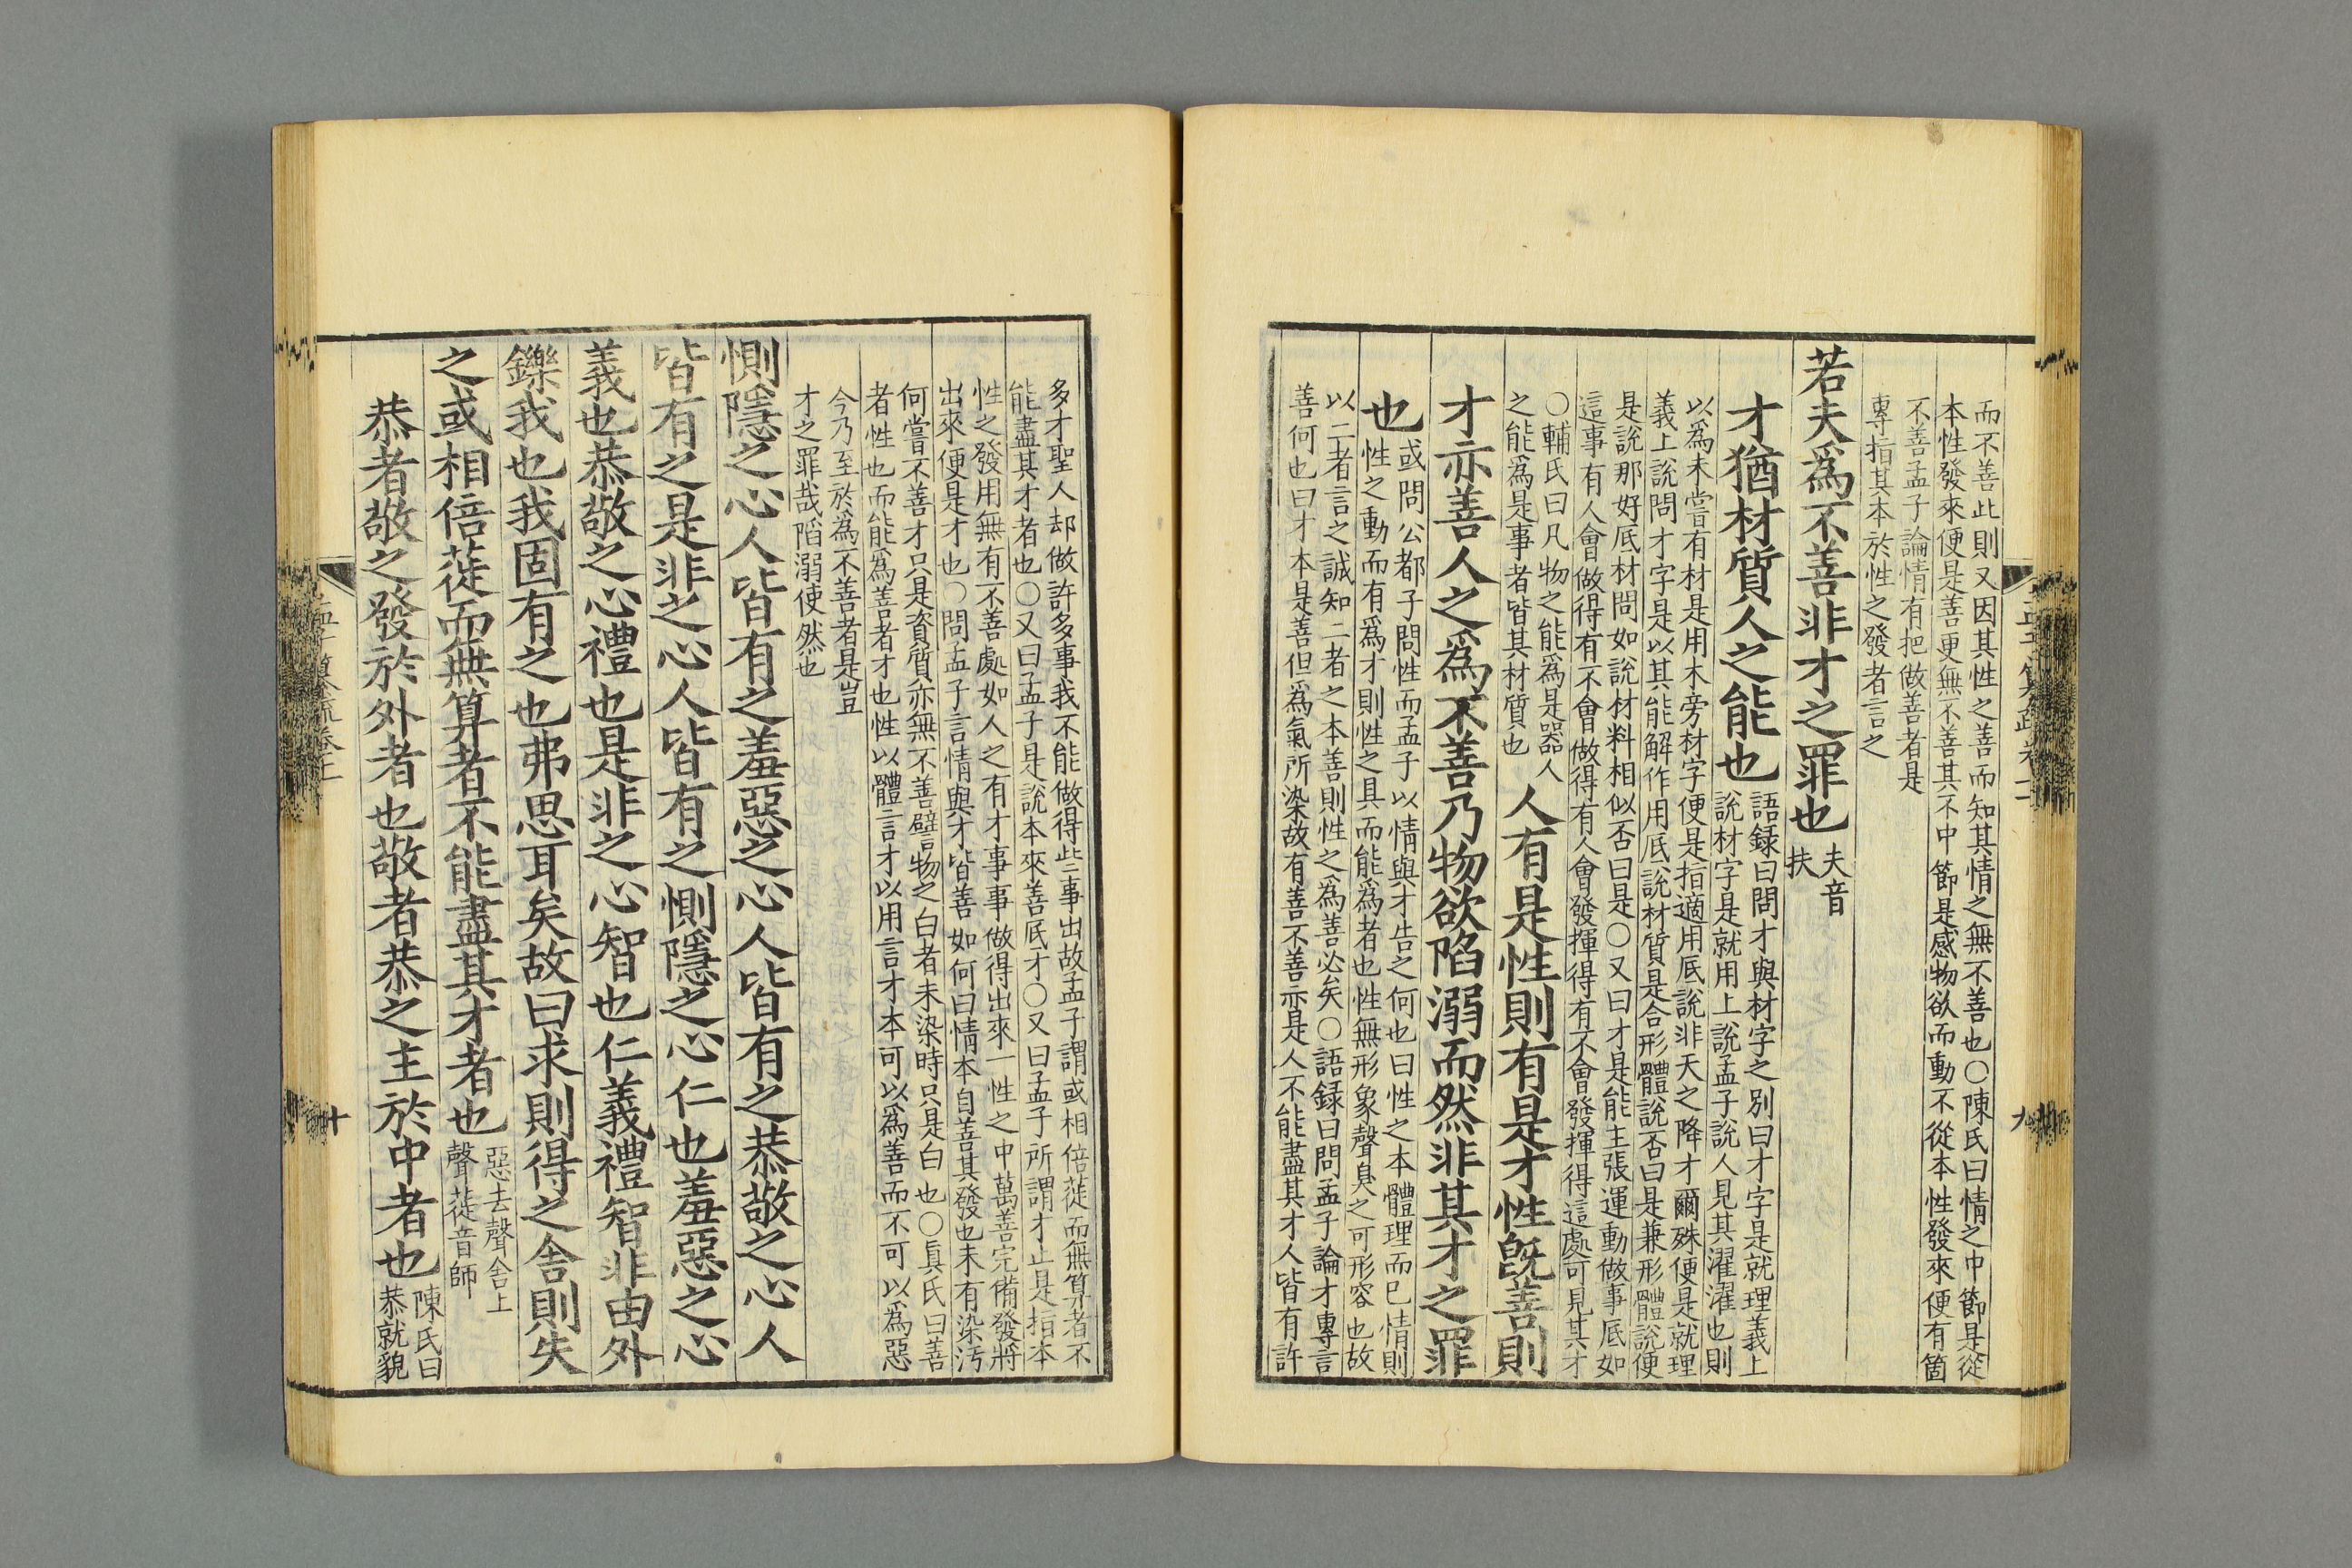 而不善此則又因其性之善而知其情之無不善也〇陳氏曰情之中節是從
本性發來便是善更無不善其不中節是感物欲而動不從本性發來便有箇
不善孟子論情有把做善者是
專指其本於性之發者言之
若夫爲不善非才之罪也夫音
扶
才猶材質人之能也語録曰問才與材字之別曰才字是就理義上
說材字是就用上說孟子說人見其濯濯也則
以爲未嘗有材是用木旁材字便是指適用底說非天之降才爾殊便是就理
義上說問才字是以其能解作用底說材質是合形體說否曰是兼形體說便
是說那好底材問如說材料相似否曰是〇又曰才是能主張運動做事底如
這事有人會做得有不會做得有人會發揮得有不會發揮得這處可見其才
〇輔氏曰凡物之能爲是器人
之能爲是事者皆其材質也
人有是性則有是才性旣善則
才亦善人之爲不善乃物欲陷溺而然非其才之罪
也或問公都子問性而孟子以情與才告之何也曰性之本體理而已情則
性之動而有爲才則性之具而能爲者也性無形象聲臭之可形容也故
以二者言之誠知二者之本善則性之爲善必矣〇語録曰問孟子論才專言
善何也曰才本是善但爲氣所染故有善不善亦是人不能盡其才人皆有許
孟子
九
多才聖人却做許多事我不能做得些事出故孟子謂或相倍蓰而無算者不
能盡其才者也〇又曰孟子是說本來善底才〇又曰孟子所謂才止是指本
性之發用無有不善處如人之有才事事做得出來一性之中萬善完備發將
出來便是才也〇問孟子言情與才皆善如何曰情本自善其發也未有染汚
何嘗不善才只是資質亦無不善譬物之白者未染時只是白也〇眞氏曰善
者性也而能爲善者才也性以體言才以用言才本可以爲善而不可以爲惡
今乃至於爲不善者是豈
才之罪哉陷溺使然也
惻隱之心人皆有之羞惡之心人皆有之恭敬之心人
皆有之是非之心人皆有之惻隱之心仁也羞惡之心
義也恭敬之心禮也是非之心智也仁義禮智非由外
鑠我也我固有之也弗思耳矣故曰求則得之舍則失
之或相倍蓰而無算者不能盡其才者也惡去聲舍上
聲蓰音師
恭者敬之發於外者也敬者恭之主於中者也陳氏曰
恭就貌
十